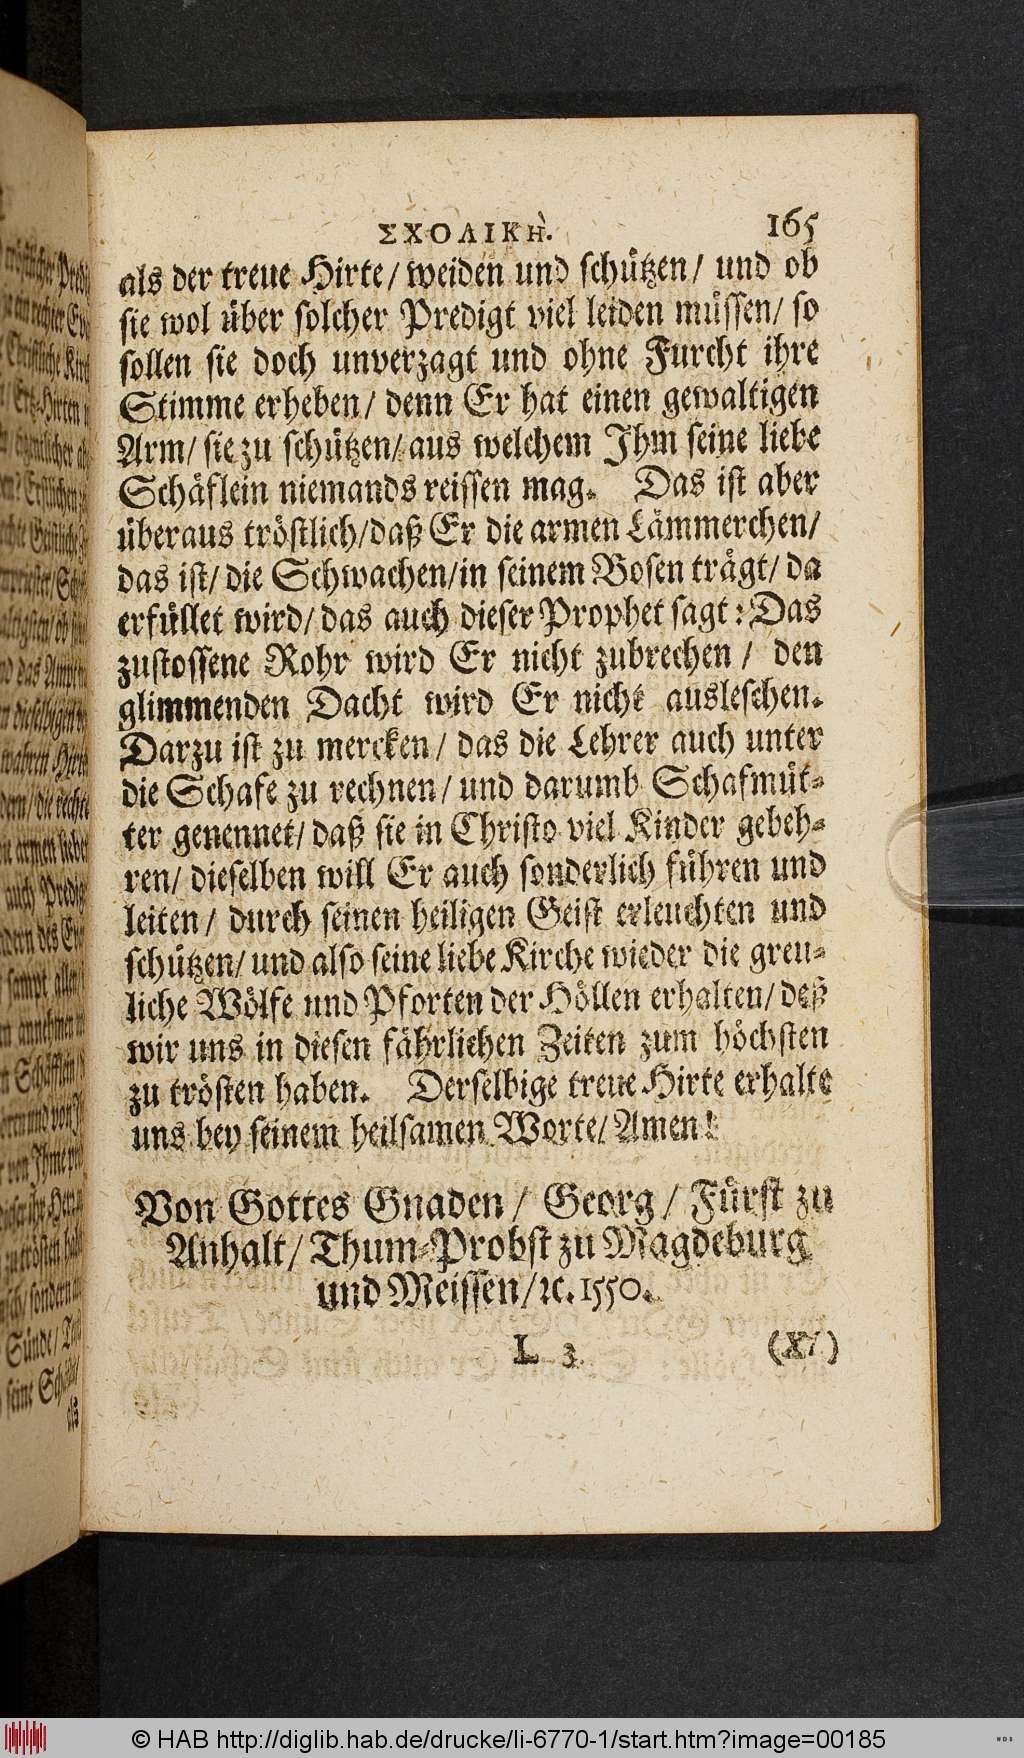 ΣΧΟΛΙΚὴ. 165
als der treue Hirte/ weiden und schützen/ und ob
sie wol über solcher Predigt viel leiden müssen/ so
sollen sie doch unverzagt und ohne Furcht ihre
Stimme erheben/ denn Er hat einen gewaltigen
Arm/ sie zu schützen/ aus welchem Ihm seine liebe
Schäflein niemands reissen mag. Das ist aber
überaus tröstlich/ daß Er die armen Lämmerchen/
das ist/ die Schwachen/ in seinem Bosen trägt/ da
erfüllet wird/ das auch dieser Prophet sagt: Das
zustossene Rohr wird Er nicht zubrechen/ den
glimmenden Dacht wird Er nicht ausleschen.
Darzu ist zu mercken/ das die Lehrer auch unter
die Schafe zu rechnen/ und darumb Schafmüt-
ter genennet/ daß sie in Christo viel Kinder gebeh-
ren/ dieselben will Er auch sonderlich führen und
leiten/ durch seinen heiligen Geist erleuchten und
schützen/ und also seine liebe Kirche wieder die greu-
liche Wölfe und Pforten der Höllen erhalten/ deß
wir uns in diesen fährlichen Zeiten zum höchsten
zu trösten haben. Derselbige treue Hirte erhalte
uns bey seinem heilsamen Worte/ Amen!
Von Gottes Gnaden/ Georg/ Fürst zu
Anhalt/ Thum-Probst zu Magdeburg
und Meissen/ ꝛc. 1550.
L 3 (XI)
© HAB http://diglib.hab.de/drucke/li-6770-1/start.htm?image=00185